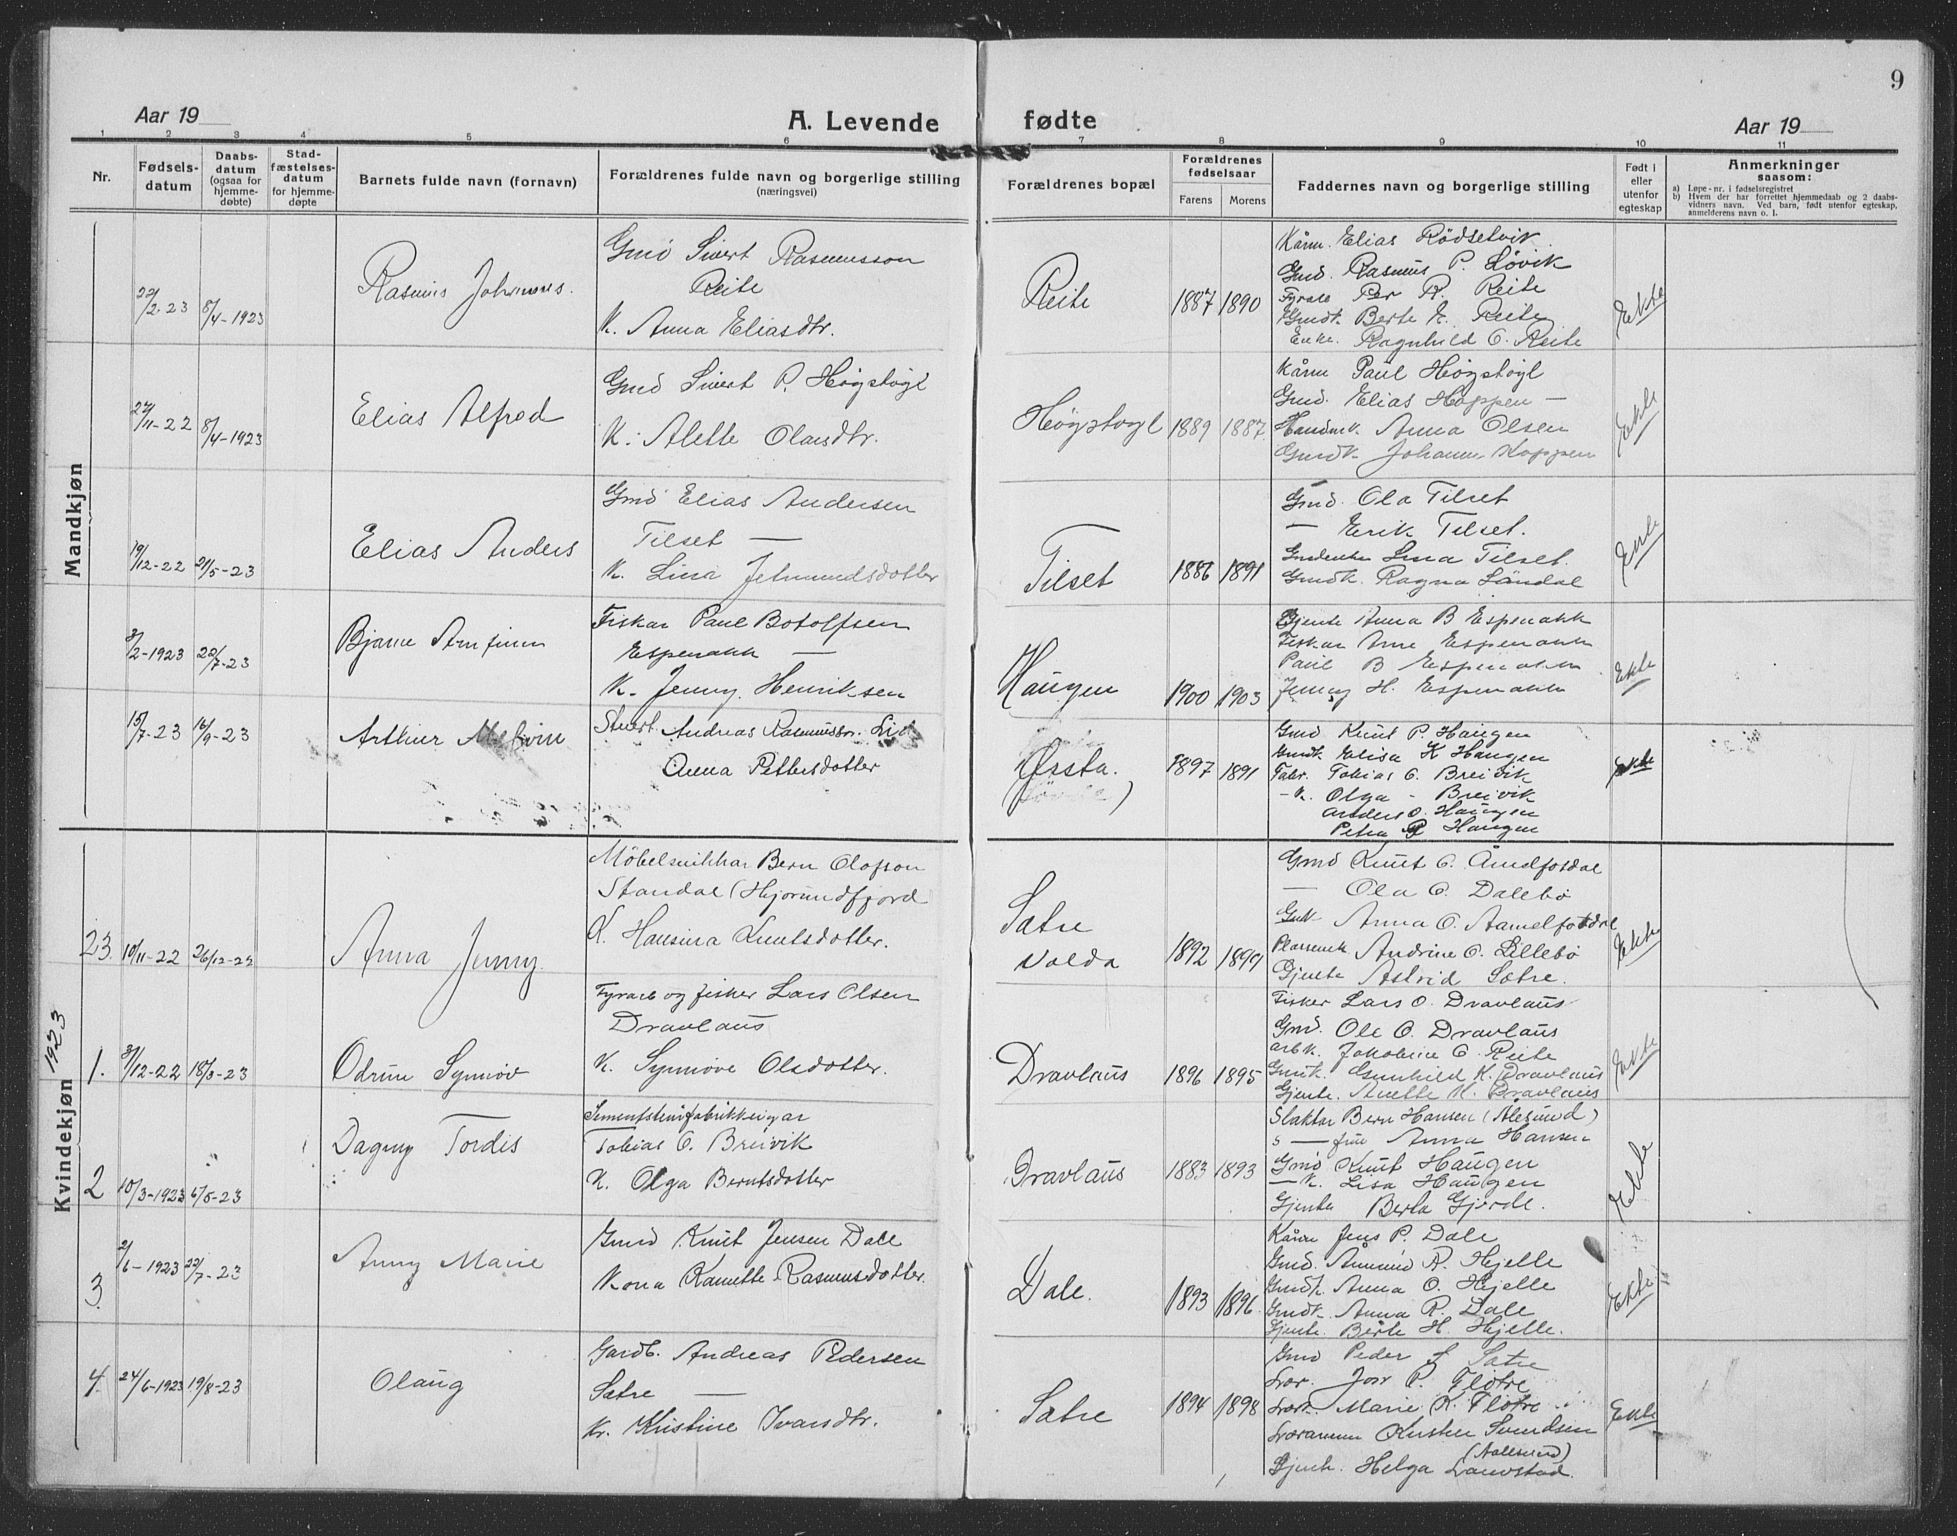 9
Aar 19
A. Levende
fødte
Aar 19
1 2 3 4 5 6 7 8 9 10 11
Nr.
Fødsels-
datum
Daabs-
datum
(ogsaa for
hjemme-
døbte)
Stad-
fæstelses-
datum
for hjemme-
døpte
Barnets fulde navn (fornavn)
Forældrenes fulde navn og borgerlige stilling
(næringsvei)
Forældrenes bopæl
Forældrenes
fødselsaar
Farens Morens
Faddernes navn og borgerlige stilling
Født i
eller
utenfor
egteskap
Anmerkninger
saasom:
a) Løpe-nr. i fødselsregistret
b) Hvem der har forrettet hjemmedaab og 2 daabs-
vidners navn. Ved barn, født utenfor egteskap,
anmelderens navn o. l.
Mandkjøn
22/2-23 8/4-1923
Rasmus Johannes.
Gmd Sivert Rasmusson
Reite
K. Anna Eliasdtr.
Reite
1887 1890
Kårm. Elias Rödsetvik
Gmd. Rasmus P. Løvik
Per R. Reite
Gmdk. Berte E. Reite
Enke. Ragnhild O. Reite
Ekte
27/11-22 8/4-1923
Elias Alfred
Gmd Sivert P. Høgstøyl
K. Alette Olausdtr.
Høgstøyl
1889 1887
Kårm Paul Høgstøyl
Gmd. Elias Hoppen —
Anna Olsen
Gmdk. Johanne Hoppen
Ekte
19/12-22 21/5-23
Elias Anders
Gmd Elias Andersen
Tilset —
K. Lina Jetmundsdotter
Tilset
1886 1891
Gmd. Ola Tilset
— Erik Tilset.
Lina Tilset.
Gmdk. Ragna Løndal
Ekte
3/2-1923 22/7-23
Bjarne Arnfinn
Fiskar Paul Botolfsen
Espenakk —
K. Jenny Henriksen
Haugen
1900 1903
Gjente Anna B Espenakk
Fiskar Arne Espenakk
Paul B Espenakk
Jenny H. Espenakk
Ekte
15/7-23 16/9-23
Arthur
Stuert. Andreas Rasmusson.
Anna Pettersdotter
Ørsta.
1897 1891
Gmd Knut P. Haugen
Gmdk. Elisa K Haugen
Fabr. Tobias O. Breivik
- K. Olga - Breivik
Anders O. Haugen
Petra R Haugen
Ekte
Kvindekjøn 1923
23 10/11-22 26/12-22
Anna Jenny
Möbelsnikkar Bern Olofson
Standal (Hjørundfjord
K. Hansina Knutsdotter.
Sætre
Volda
1892 1899
Gmd Knut O. Åmelfotdal
— Ola O. Dalebø
Anna O. Aamelfotdal
Andrine O. Lillebø
Gjente Astrid Sætre.
Ekte
1. 3/12-22 18/3-23
Odrun Synnöv
Fyrarb og fisker Lars Olsen
Dravlaus
K. Synnöve Olsdotter.
Dravlaus
1896 1895
Fisker Lars O. Dravlaus
Gmd. Ole O. Dravlaus
arb k. Jakobine O. Reite
Gmk. Gunhild K. Dravlaus
Gjente. Anette K. Dravlaus
Ekte
2 10/3-1923 6/5-23
Dagny Tordis
Sementsteinfabrikkeigar
Tobias O. Breivik
K. Olga Berntsdotter
Dravlaus
1883 1893
Slaktar Bern Hansen (Ålesund)
s — frue Anna Hansen
Gmd Knut Haugen
— K. Lisa Haugen
Gjente Berta Gjerde.
Ekte
3 2/6-1923 22/7-23
Anny Marie
Gmd Knut Jensen Dale
Kona Ramette Rasmusdotter.
Dale.
1893 1896
Kårm Jens P. Dale
Gmd. Åmund R. Hjelle
Gmdk. Anna O. Hjelle
Gmdk. Anna R. Dale
Gjente. Berte H. Hjelle.
Ekte
4 24/6-1923 19/8-23
Olaug
Gardb. Andreas Pedersen
Sætre —
K. Kristine Ivarsdtr.
Sætre
1894 1898
Gmd Peder Sætre
P. Flötre
Marie K. Flötre
Svendsen
(Aalesund)
Gjente. Helga Lauvstad.
Ekte